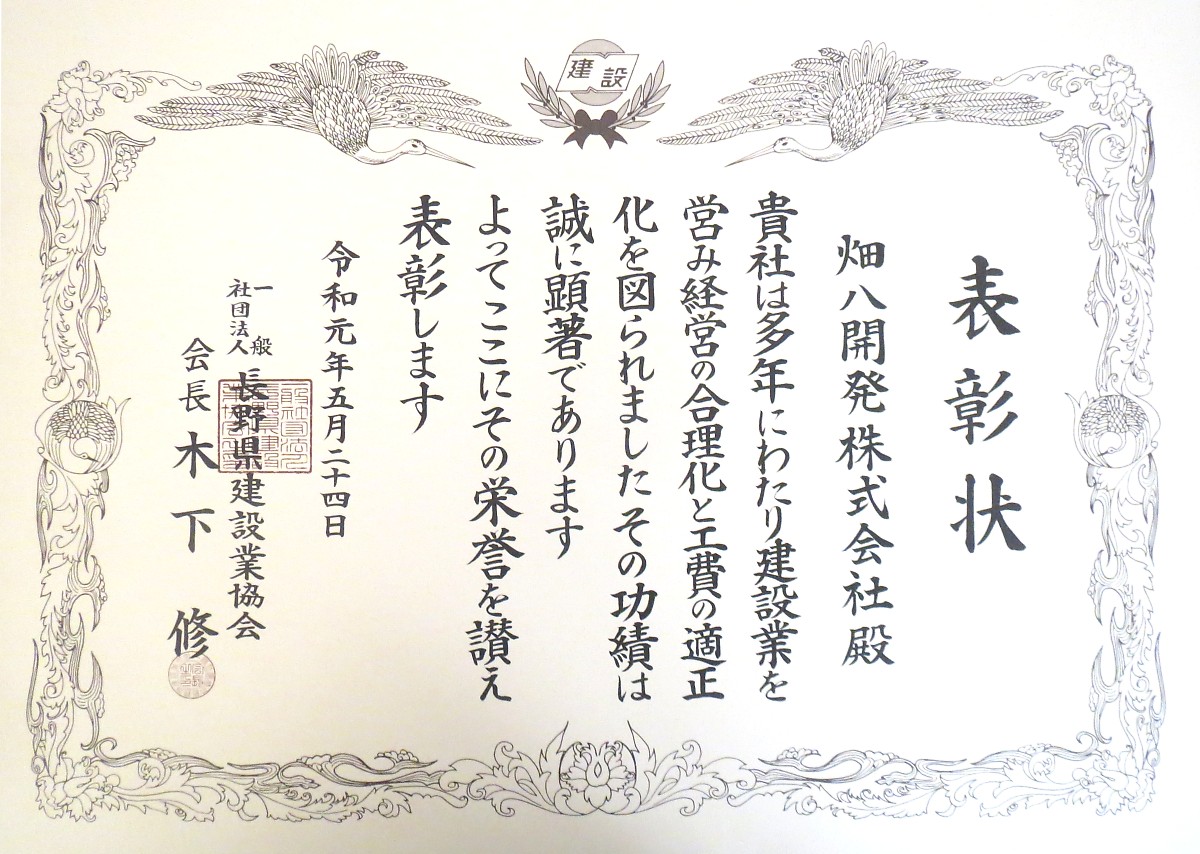 建設
表彰状
畑八開発株式会社殿
貴社は多年にわたり建設業を
営み経営の合理化と工費の適正
化を図られましたその功績は
誠に顕著であります
よってここにその栄誉を讃え
表彰します
令和元年五月二十四日
一般社団法人長野県建設業協会
会長木下修